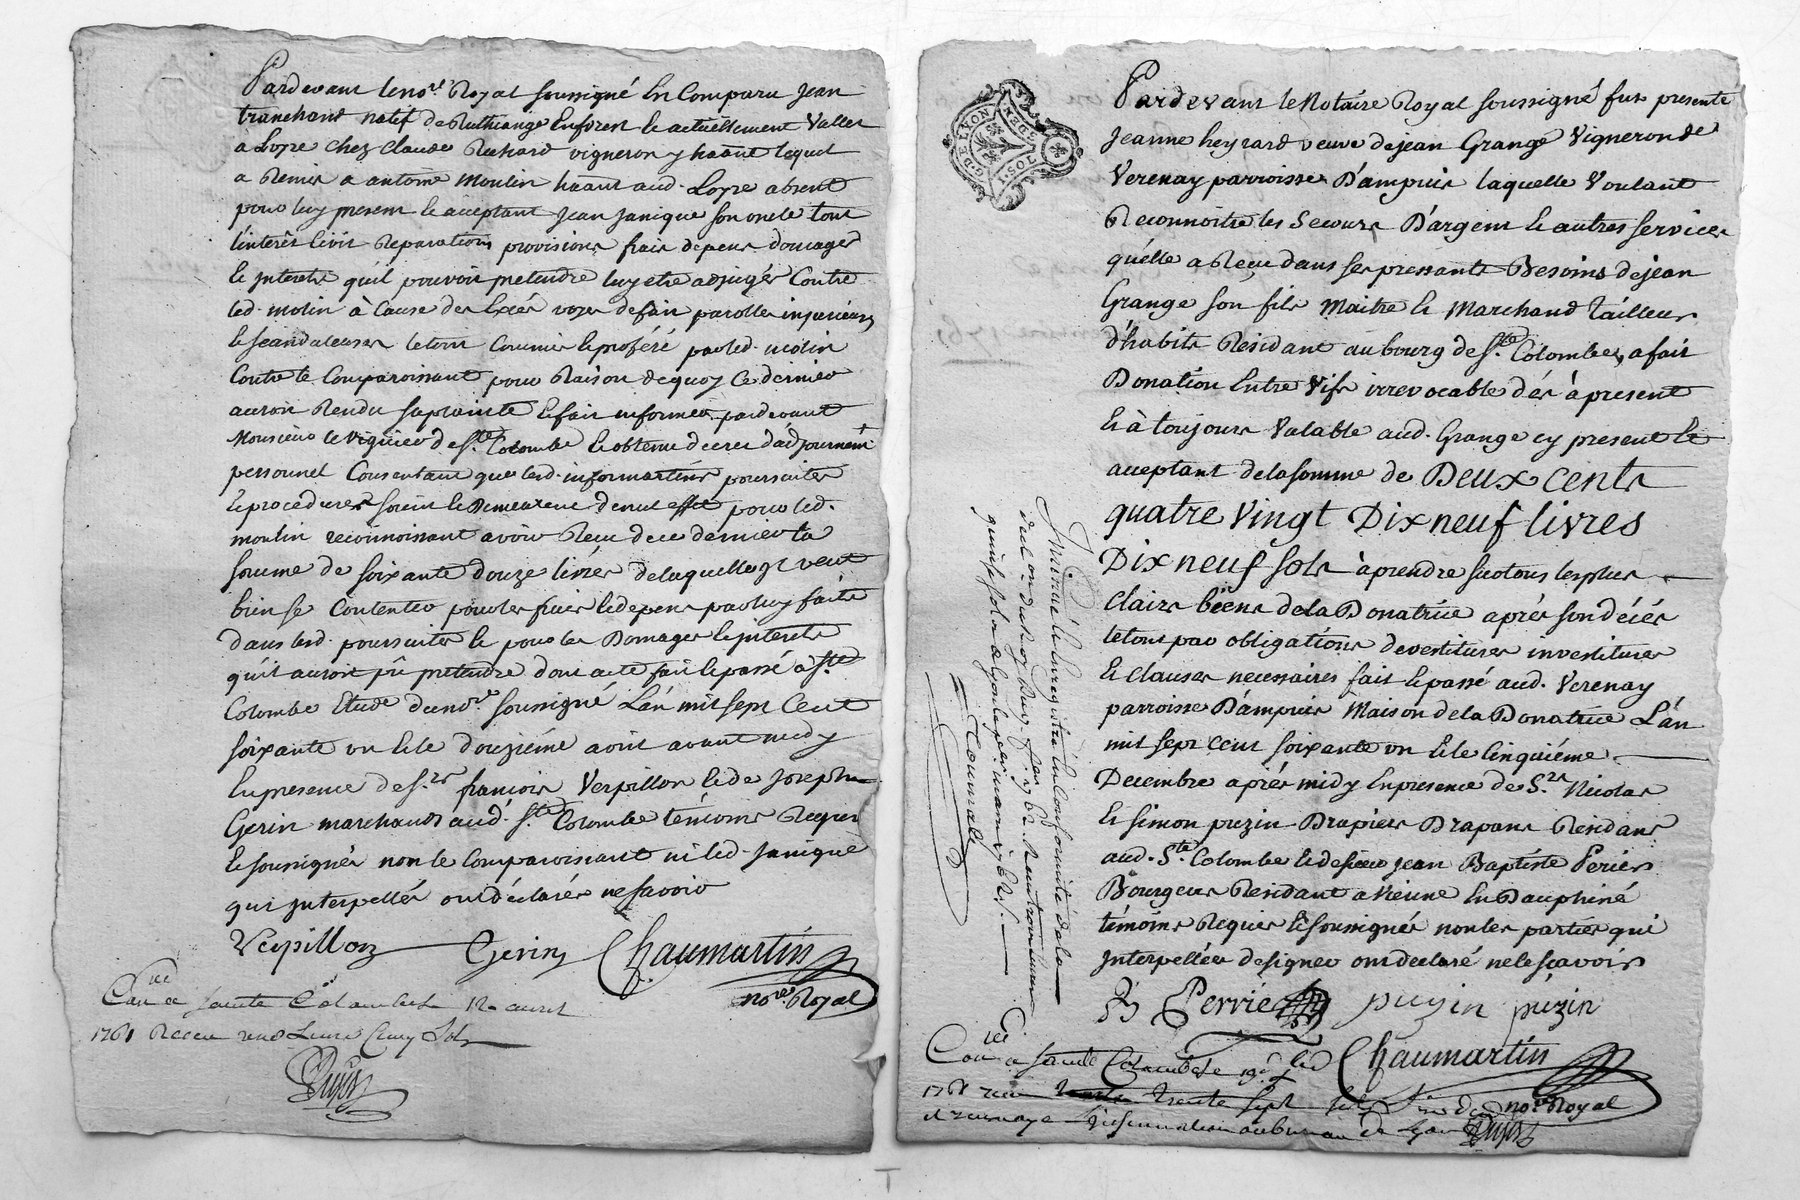 Pardevant le no.re Royal soussigné En Comparu Jean
tranchand natif de Ruthiange Enforest le actuellement Vallet
a Loyre chez Claude Richard vigneron y hātant lequel
a Remis a antoine Moulin hātant aud. Loyre absent
pour luy present le acceptant Jean Janique son oncle tout
l'interêt livil Reparations provisions frais depens domages
le Interets qu'il pouvoit pretendre luy etre adjugés Contre
led. molin à Cause des Excés voyes defait parolles injurieuses
le scandaleuses letout Commis le proféré par led. molin
Contre le Comparoissant pour Raison dequoy Ce dernier
auroit Rendu saplainte le fait informer pardevant
Monsieur le viguier de S.te Colombe le obtenu decret d'adjournem.t
personnel Consentant que lesd. informations poursuites
le procedures soient le Demeurent denul effet pour led.
moulin reconnoissant avoir Recu de ce dernier la
somme de soixante douze livres delaquelle il veut
bien se Contenter pour les frais le depens par luy faits
dans lesd. poursuites le pour les Domages le interets
qu'il auroit pû pretendre dont acte fait le passé à S.te
Colombe Etude du no.re soussigné L'an mil sept Cent
soixante un le le douzième aoüt avant midy
En presence de S.rs françois Verpillon le de Joseph
Gerin marchands aud. S.te Colombe témoins Requis
le soussignés non le Comparoissant ni led. Janique
qui Interpellés ont déclarés ne savoir
Verpillon Gerin Chaumartin
no.re Royal
Con.lé a sainte Colombe le 12 aoust
1761 Receu
G. DE LYON
SOLS
Pardevant le Notaire Royal soussigné fut presente
Jeanne heyrard veuve de jean Grange Vigneron de
Verenay parroisse D'ampuis laquelle Voulant
Reconnoitre les Secours D'argent le autres services
qu'elle a Recu dans ses pressants Besoins de jean
Grange son fils Maitre le Marchand Tailleur
d'habits Residant au bourg de S.te Colombe, a fait
Donation Entre Vifs irrevocable dés à present
le à toujours Valable aud. Grange cy present le
acceptant de la somme de Deux cents
quatre Vingt Dix neuf livres
Dix neuf sols à prendre sur tous les plus
clairs biens de la Donatrice aprés son décés
le tout par obligations devestitures investitures
le clauses necessaires fait le passé aud. Verenay
parroisse D'ampuis Maison de la Donatrice L'an
mil sept cent soixante un le le Cinquiéme
Decembre aprés midy En presence de S.rs Nicolas
le simon puzin Drapiers Drapans Residans
aud. S.te Colombe le de sieur jean Baptiste Perier
Bourgeois Residant a Vienne En Dauphiné
témoins Requis le soussignés non les parties qui
Interpellées de signer ont declaré ne le sçavoir
Perrier puzin puzin
Chaumartin
no.re Royal
Con.lé a sainte Colombe le 19
1761 receu trente sept sols
insinuation au bureau de Lyon
Insinué le Enregistré En Conformité de la